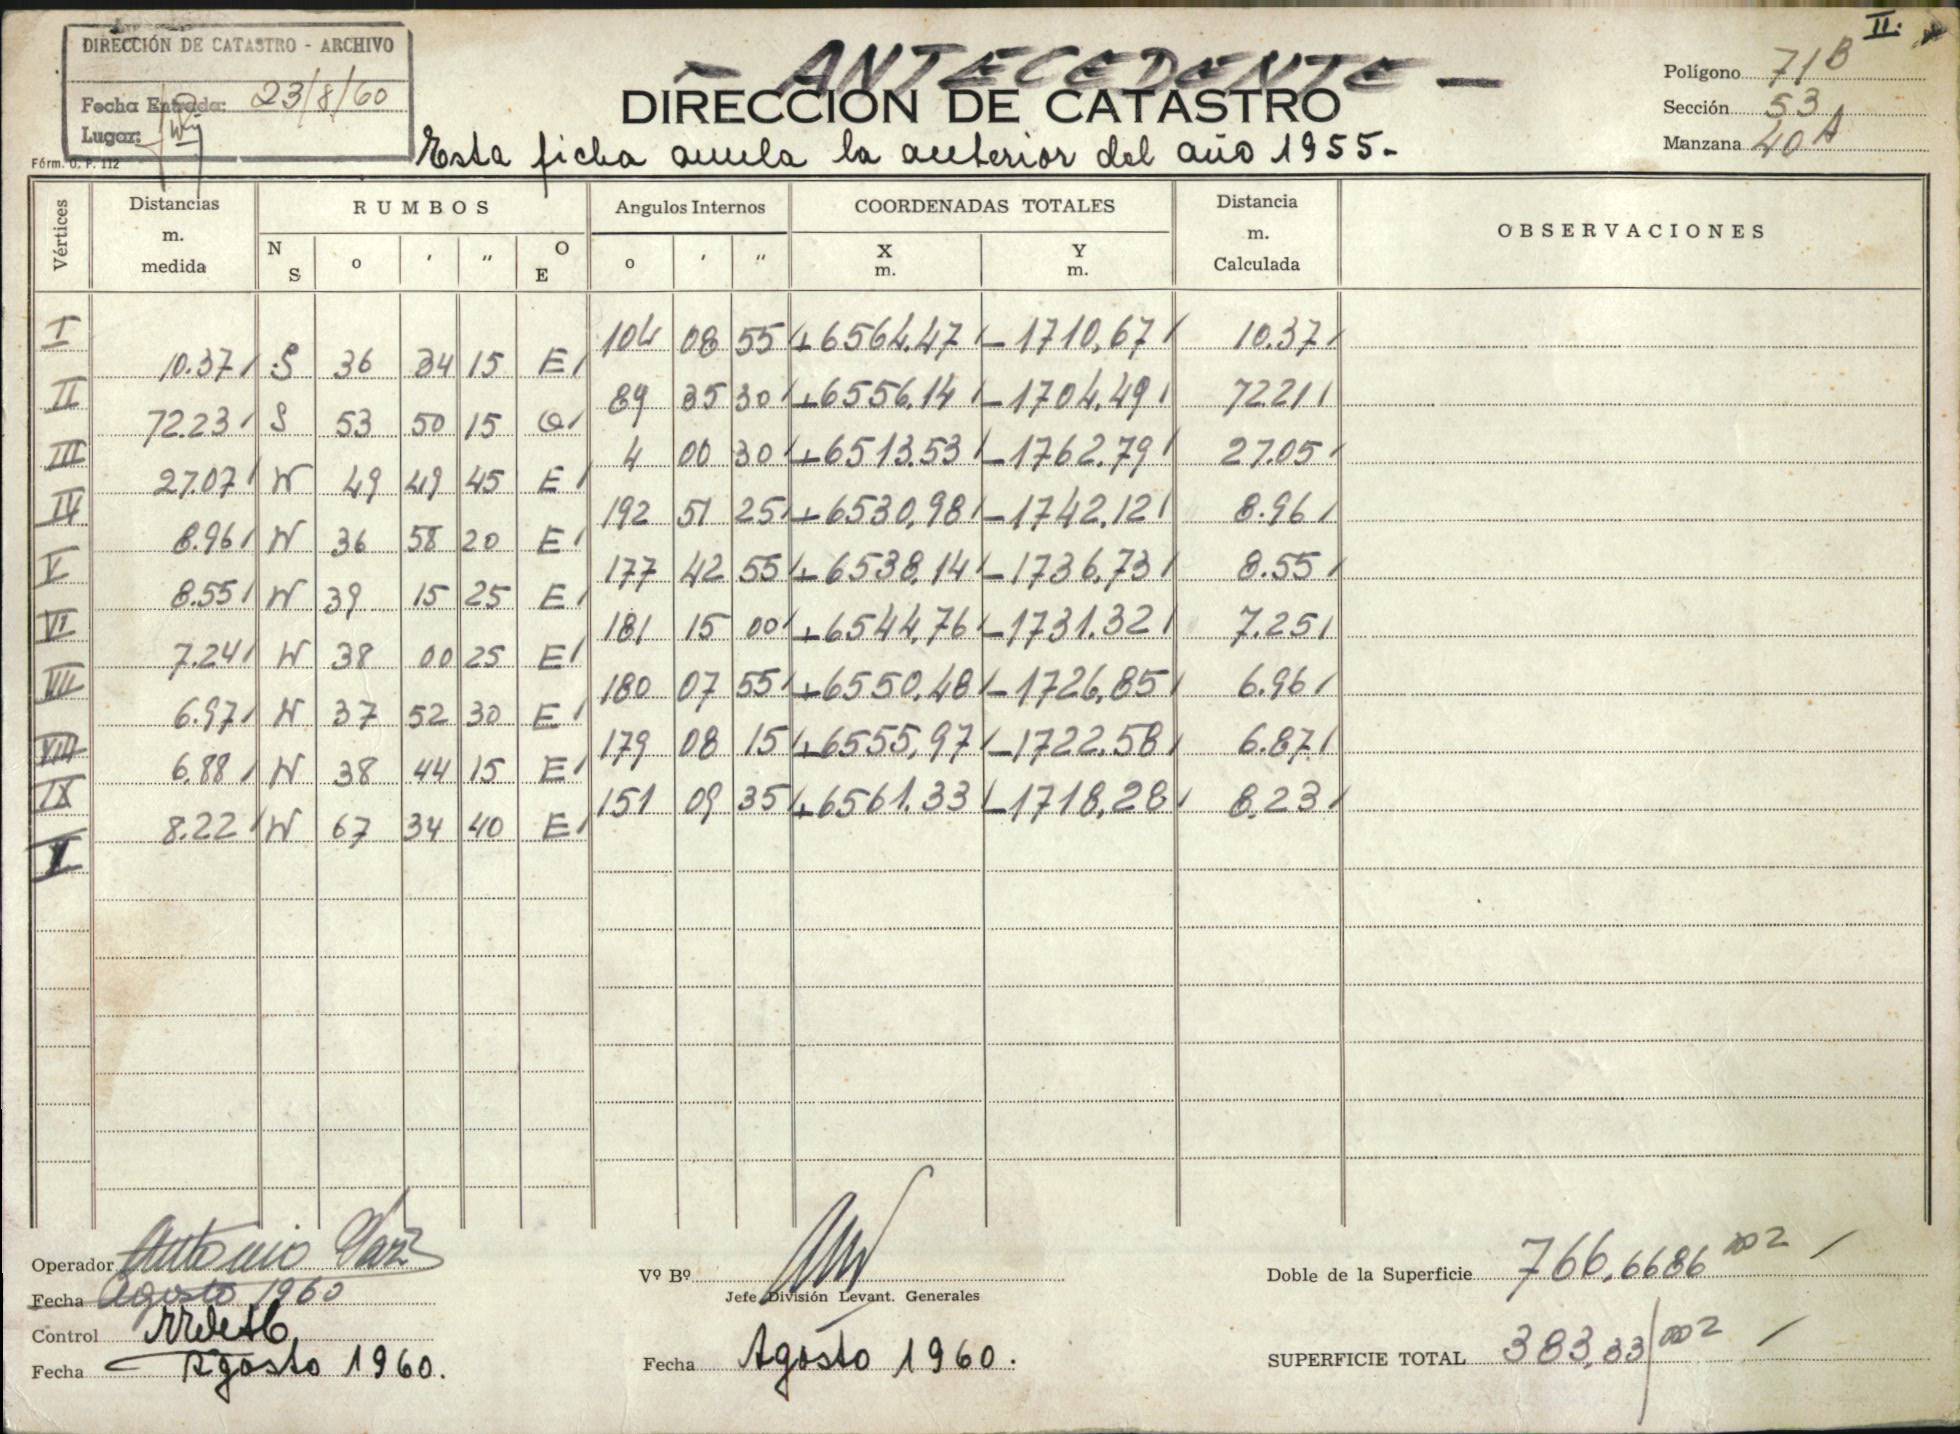 II.
DIRECCIÓN DE CATASTRO - ARCHIVO
Fecha Entrada: 23/8/60
Lugar:
Fórm. O. P. 112
- ANTECEDENTE -
DIRECCION DE CATASTRO
Esta ficha anula la anterior del año 1955.-
Polígono 71 B
Sección 53
Manzana 40 A
Vértices Distancias m. medida RUMBOS Angulos Internos COORDENADAS TOTALES Distancia m. Calculada OBSERVACIONES
N S o ' " O E o ' " X m. Y m.
I 104 08 55 +6564,47 -1710,67 10.37
10.37 S 36 34 15 E
II 89 35 30 +6556,14 -1704,49 72.21
72.23 S 53 50 15 O
III 4 00 30 +6513.53 -1762.79 27.05
27.07 N 49 49 45 E
IV 192 51 25 +6530,98 -1742,12 8.96
8.96 N 36 58 20 E
V 177 42 55 +6538,14 -1736,73 8.55
8.55 N 39 15 25 E
VI 181 15 00 +6544,76 -1731.32 7.25
7.24 N 38 00 25 E
VII 180 07 55 +6550,48 -1726,85 6.96
6.97 N 37 52 30 E
VIII 179 08 15 +6555,97 -1722.58 6.87
6.88 N 38 44 15 E
IX 151 09 35 +6561.33 -1718,28 8.23
8.22 N 67 34 40 E
I
Operador Antonio
Fecha Agosto 1960
Control
Fecha Agosto 1960.
Vº Bº
Jefe División Levant. Generales
Fecha Agosto 1960.
Doble de la Superficie 766,6686 m2
SUPERFICIE TOTAL 383,33 m2